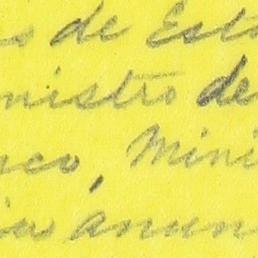 s de Esta
nistro de
nco, Mini
ias anun